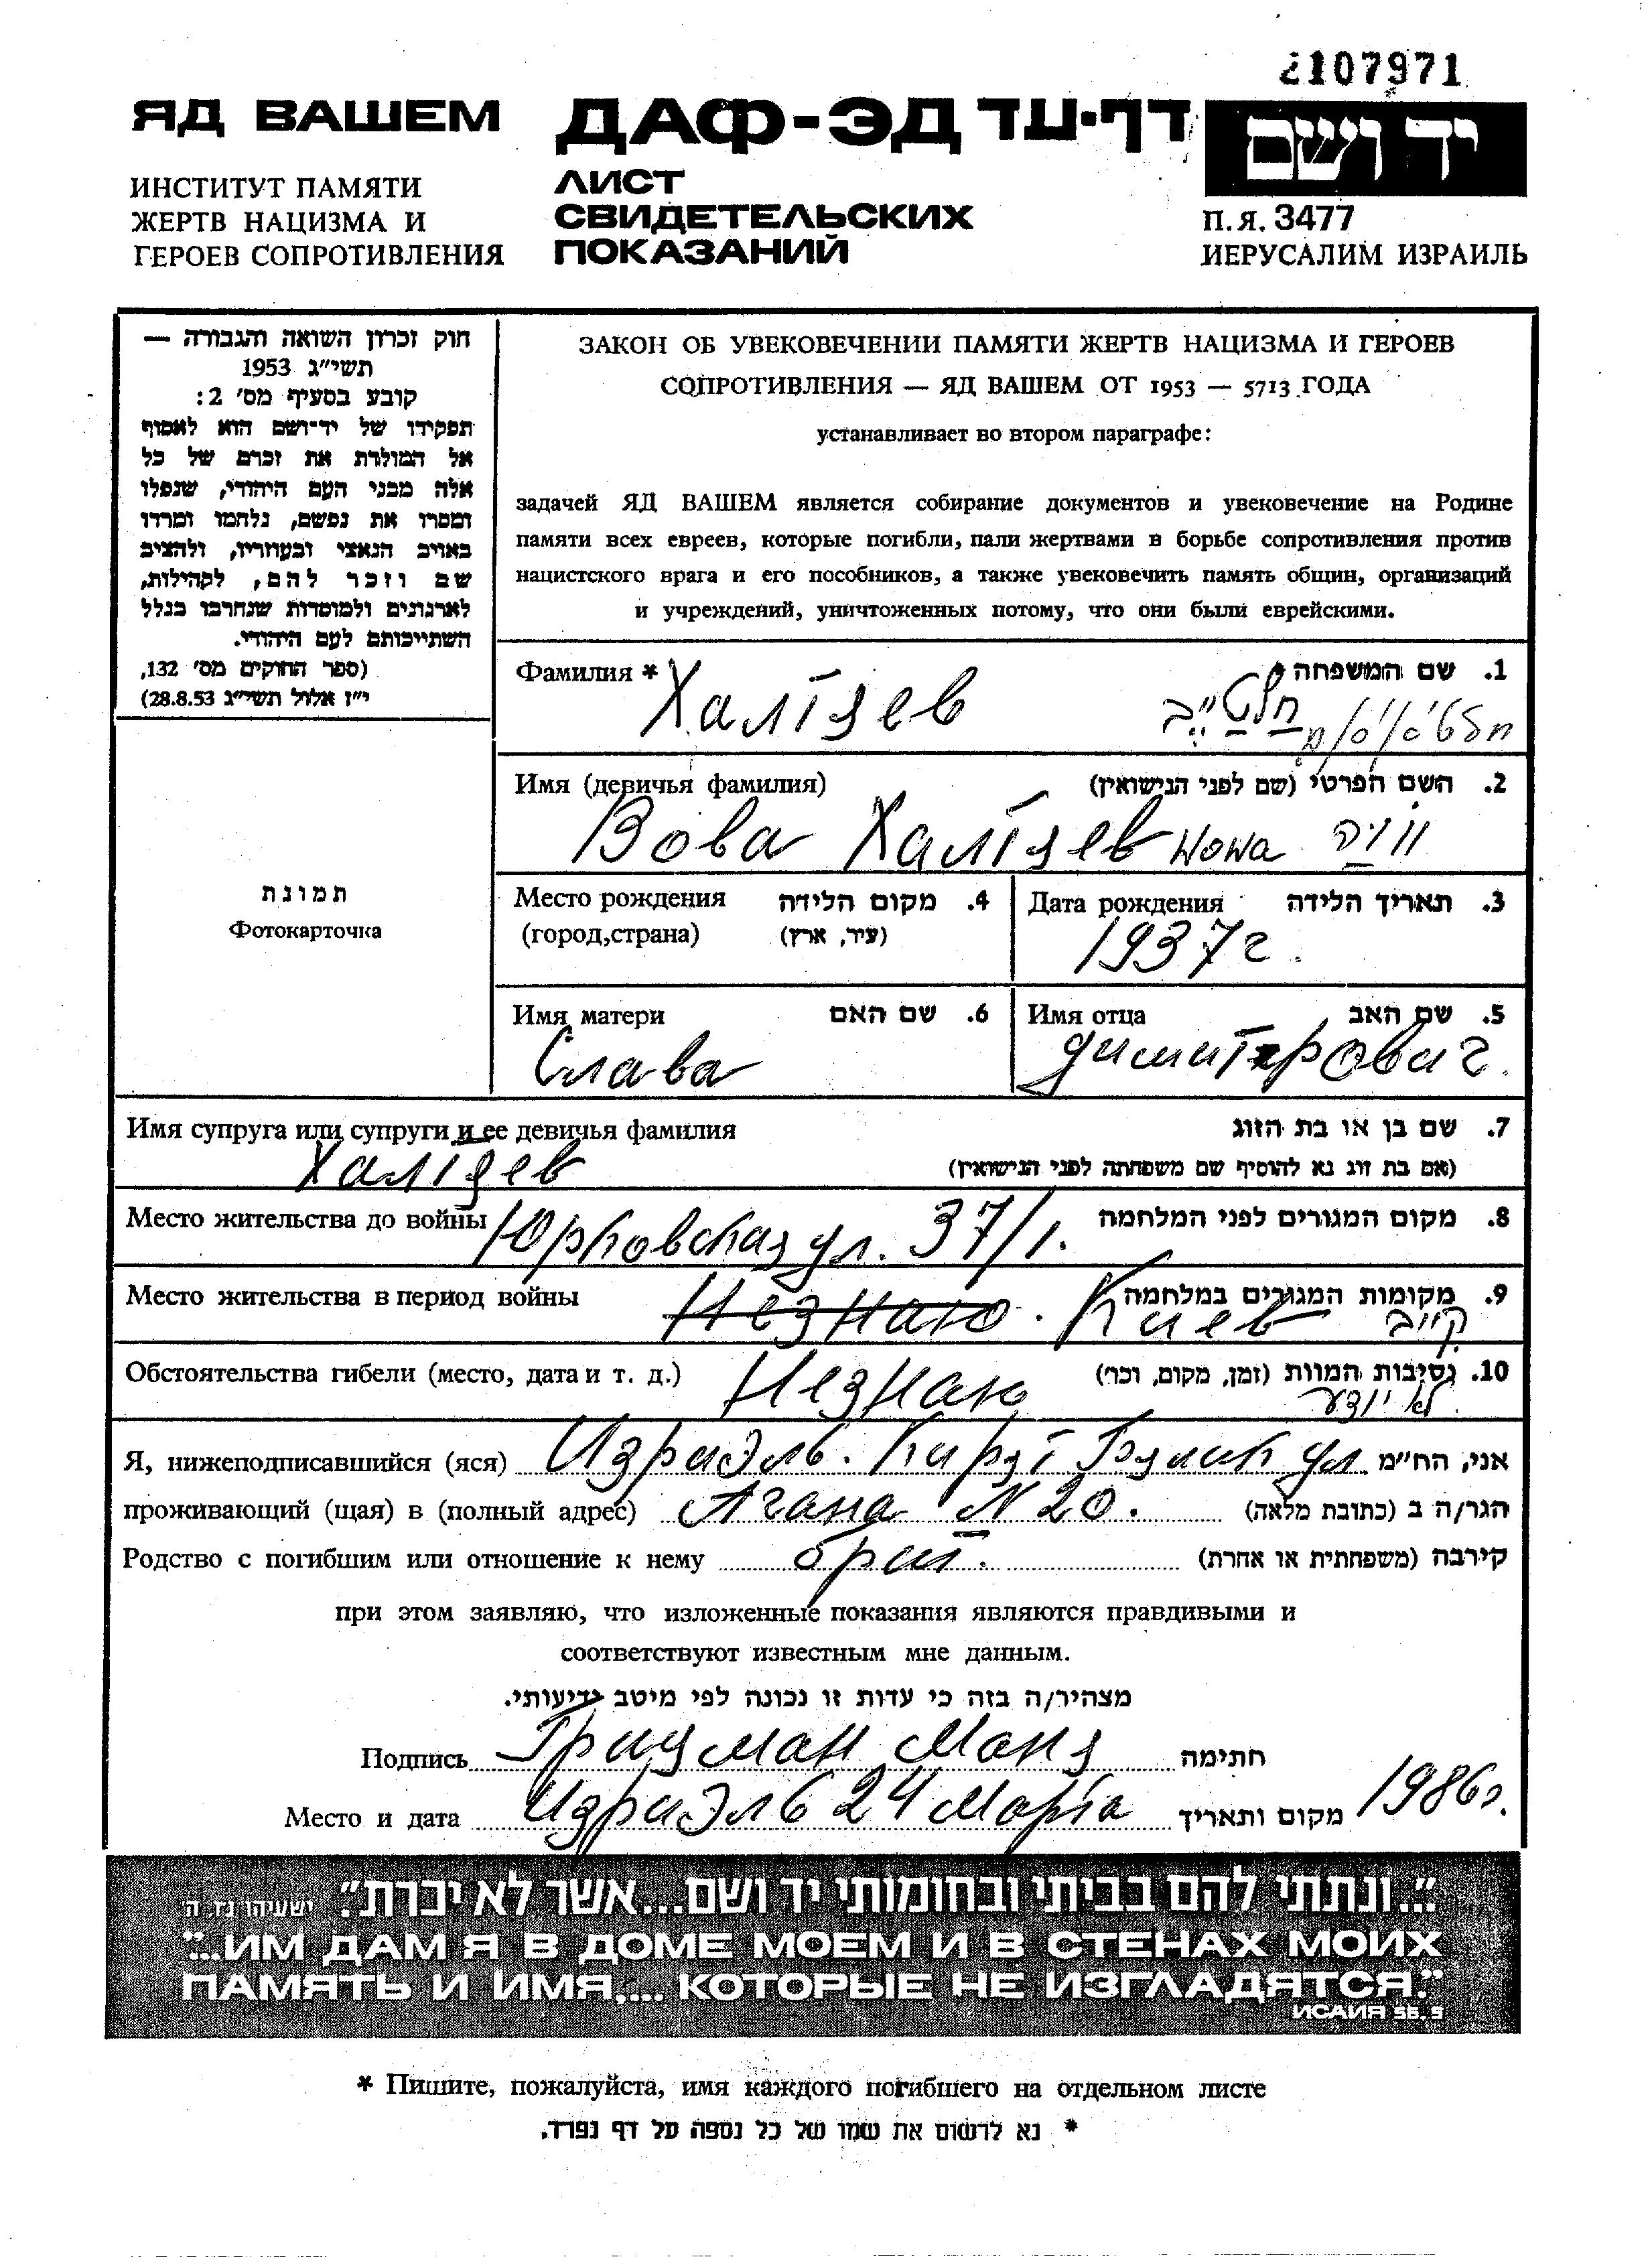 2107971
ЯД ВАШЕМ
ДАФ-ЭД דף-עד
יד ושם
ИНСТИТУТ ПАМЯТИ
ЖЕРТВ НАЦИЗМА И
ГЕРОЕВ СОПРОТИВЛЕНИЯ
ЛИСТ
СВИДЕТЕЛЬСКИХ
ПОКАЗАНИЙ
П.Я. 3477
ИЕРУСАЛИМ ИЗРАИЛЬ
חוק זכרון השואה והגבורה —
תשי״ג 1953
קובע בסעיף מס׳ 2:
תפקידו של יד־ושם הוא לאסוף
אל המולדת את זכרם של כל
אלה מבני העם היהודי, שנפלו
ומסרו את נפשם, נלחמו ומרדו
באויב הנאצי ובעוזריו, ולהציב
שם וזכר להם, לקהילות,
לארגונים ולמוסדות שנחרבו בגלל
השתייכותם לעם היהודי.
(ספר החוקים מס׳ 132,
י״ז אלול תשי״ג 28.8.53)
ЗАКОН ОБ УВЕКОВЕЧЕНИИ ПАМЯТИ ЖЕРТВ НАЦИЗМА И ГЕРОЕВ
СОПРОТИВЛЕНИЯ — ЯД ВАШЕМ ОТ 1953 — 5713 ГОДА
устанавливает во втором параграфе:
задачей ЯД ВАШЕМ является собирание документов и увековечение на Родине
памяти всех евреев, которые погибли, пали жертвами в борьбе сопротивления против
нацистского врага и его пособников, а также увековечить память общин, организаций
и учреждений, уничтоженных потому, что они были еврейскими.
Фамилия * Халтяев 1. שם המשפחה *
חלטייב
Имя (девичья фамилия) 2. השם הפרטי (שם לפני הנישואין)
Вова Халтяев Wowa ווֹוה
Место рождения 4. מקום הלידה
(город,страна) (עיר, ארץ)
Дата рождения 3. תאריך הלידה
1937 г.
Имя матери 6. שם האם
Слава
Имя отца 5. שם האב
Димитрович.
תמונת
Фотокарточка
Имя супруга или супруги и ее девичья фамилия 7. שם בן או בת הזוג
Халтяев (אם בת זוג נא להוסיף שם משפחתה לפני הנישואין)
Место жительства до войны Юрковская ул. 37/1. 8. מקום המגורים לפני המלחמה
Место жительства в период войны Незнаю. Киев 9. מקומות המגורים במלחמה
קייב
Обстоятельства гибели (место, дата и т. д.) Незнаю 10. נסיבות המוות (זמן, מקום, וכר׳)
לא יודע
Я, нижеподписавшийся (яся) Изриэль. Кирят Бялик ул אני, הח״מ
проживающий (щая) в (полный адрес) Агана N 20. הגר/ה ב (כתובת מלאה)
Родство с погибшим или отношение к нему брат. קירבה (משפחתית או אחרת)
при этом заявляю, что изложенные показания являются правдивыми и
соответствуют известным мне данным.
מצהיר/ה בזה כי עדות זו נכונה לפי מיטב ידיעותי.
Подпись Грицман Маня חתימה
Место и дата Изриэль 24 Марта מקום ותאריך 1986г.
״...ונתתי להם בביתי ובחומותי יד ושם...אשר לא יכרת״. ישעיהו נו, ה
"...ИМ ДАМ Я В ДОМЕ МОЕМ И В СТЕНАХ МОИХ
ПАМЯТЬ И ИМЯ,... КОТОРЫЕ НЕ ИЗГЛАДЯТСЯ."
ИСАИЯ 56, 5
* Пишите, пожалуйста, имя каждого погибшего на отдельном листе
* נא לרשום את שמו של כל נספה על דף נפרד.